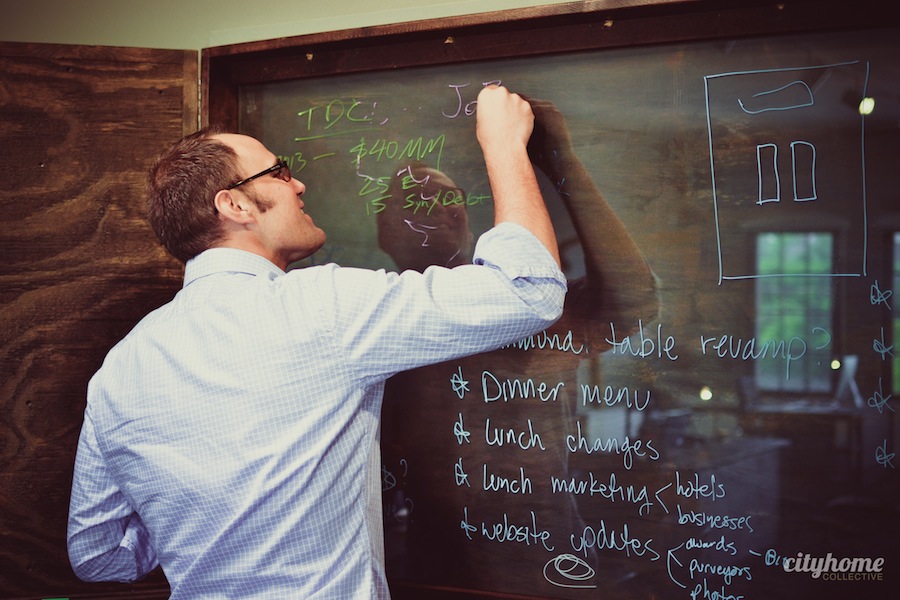 TDC:
JoB
- $40MM
25 E
15 Syn/Debt
table revamp?
Dinner menu
lunch changes
lunch marketing < hotels
businesses
website updates awards -
purveyors
photos
cityhome
COLLECTIVE